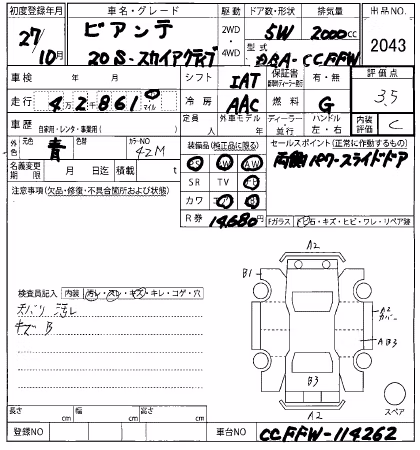 初度登録年月 車名・グレード 駆動 ドア数・形状 排気量 出品NO.
27/10月 ビアンテ 2WD・4WD 5W 2000cc 2043
20S-スカイアクティブ 型式 DBA-CCFFW
車検 年 月 シフト IAT 保証書 有・無 評価点
走行 4万2千861 マイル 冷房 AAC 燃料 G 3.5
車歴 自家用・レンタ・事業用( ) 定員 人 外車モデル 年 ディーラー・並行 ハンドル 左・右 内装評価 C
外色 元色 青 色替 カラーNO 42M 装備品(純正品に限る) セールスポイント(正常に作動するもの)
名義変更期限 月 日迄 積載 t PS AW 両側パワースライドドア
注意事項(欠品・修復・不具合箇所および状態) SR TV
カワ
R券 14,680円 Fガラス
検査員記入 内装 汚レ・スレ・キズ・キレ・コゲ・穴
汚レ
キズ B
A2
B1
A2
カバー
AB3
B3
A2
スペア
長さ cm 幅 cm 高さ cm
登録NO 車台NO CCFFW-114262